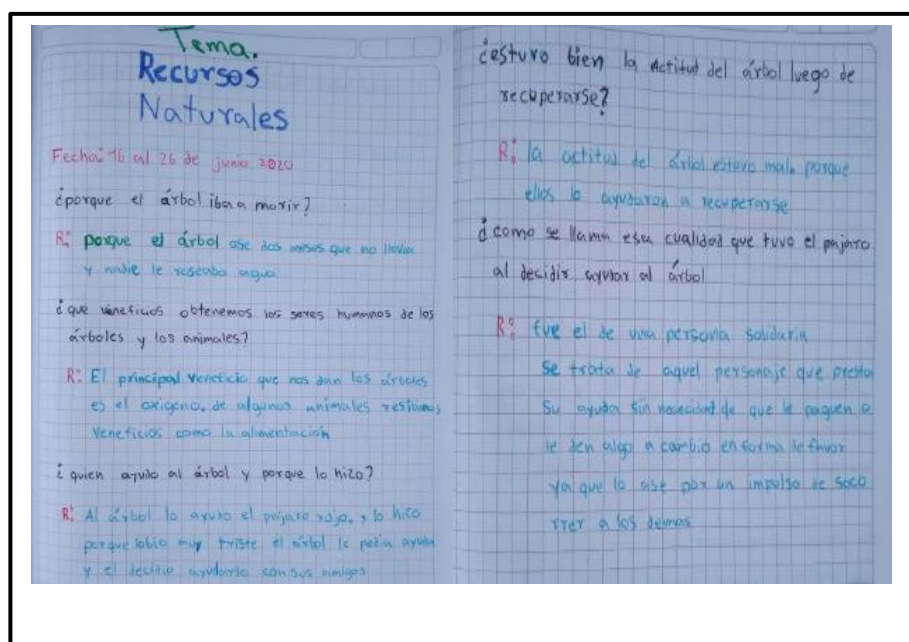 Tema.
Recursos
Naturales
Fecha: 16 al 26 de junio 2020
¿porque el árbol iba a morir?
R: porque el árbol ase dos meses que no llovia
y nadie le regaba agua
¿que veneficios obtenemos los seres humanos de los
árboles y los animales?
R: El principal veneficio que nos dan los árboles
es el oxigeno, de algunos animales resibimos
veneficios como la alimentación
¿quien ayudo al árbol y porque lo hizo?
R: Al árbol lo ayudo el pajaro rojo, y lo hizo
porque lo bio muy triste el árbol le pedia ayuda
y el decidio ayudarlo con sus amigos
¿estuvo bien la actitud del árbol luego de
recuperarse?
R: la actitud del árbol estuvo mala porque
ellos lo ayudaron a recuperarse
¿como se llama esa cualidad que tuvo el pajaro
al decidir ayudar al árbol
R: fue el de una persona solidaria
se trata de aquel personaje que presta
su ayuda sin nececidad de que le paguen o
le den algo a cambio en forma de favor
ya que lo ase por un impulso de soco
rrer a los demas